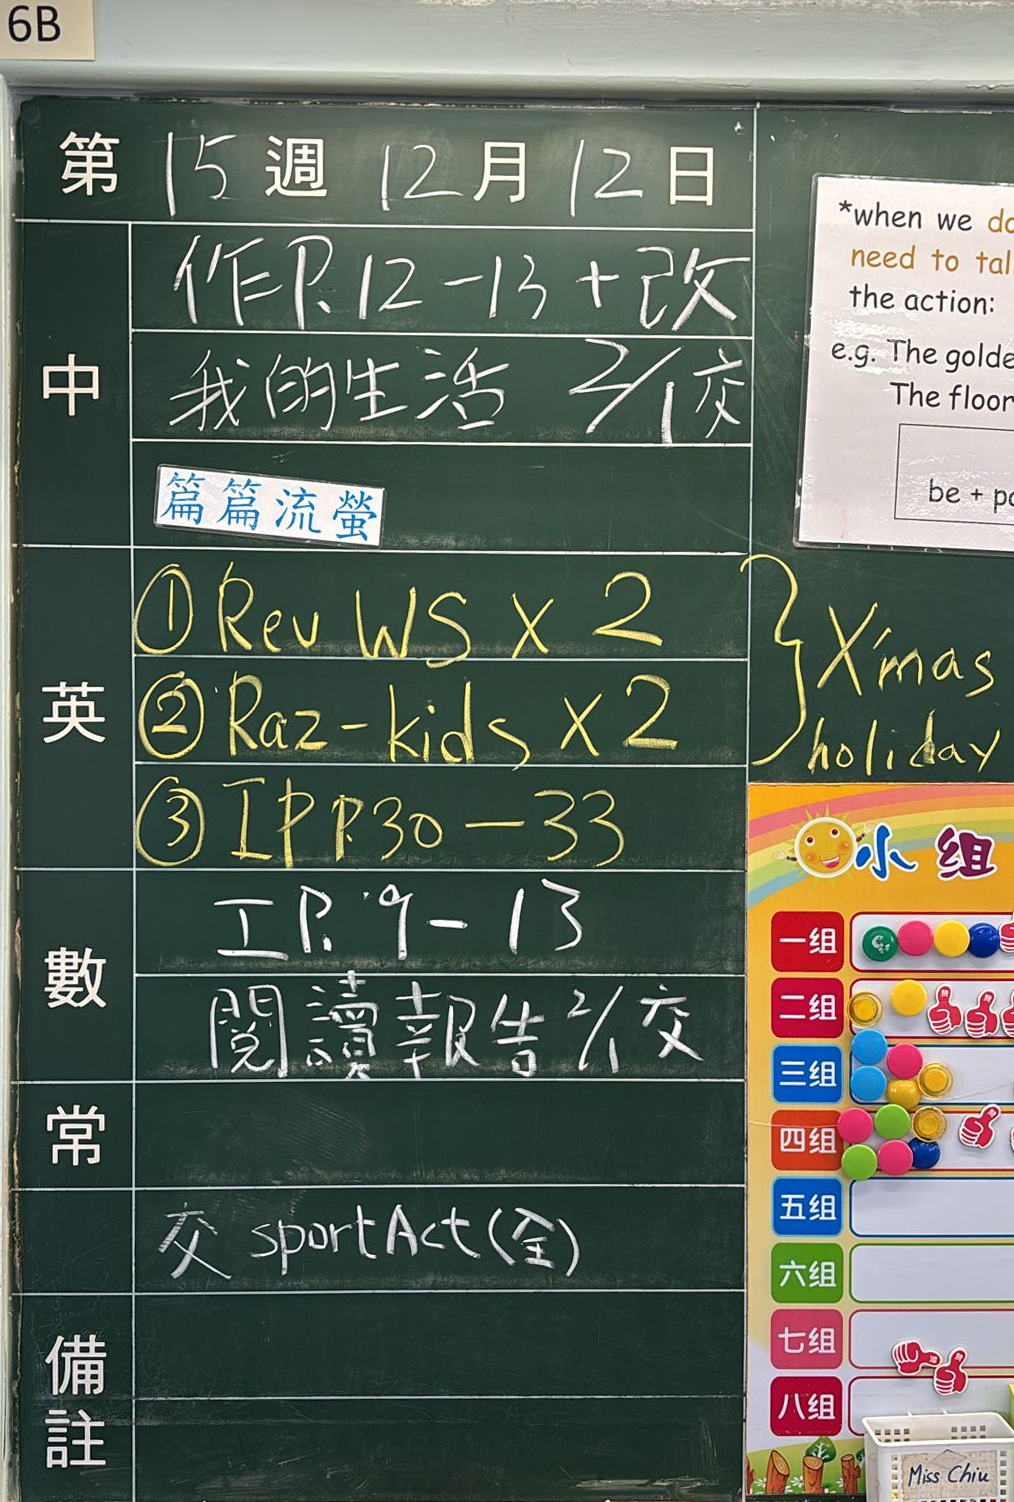 6B
第 15 週 12 月 12 日
中
作P.12-13+改
我的生活 2/1交
篇篇流螢
英
① Rev WS x 2
② Raz-kids x 2
} X'mas
holiday
③ IP P.30-33
數
工P.9-13
閱讀報告 2/1交
常
交 sportAct(全)
備
註
*when we do
need to tal
the action:
e.g. The golde
The floor
be + pa
小组
一组
二组
三组
四组
五组
六组
七组
八组
Miss Chiu